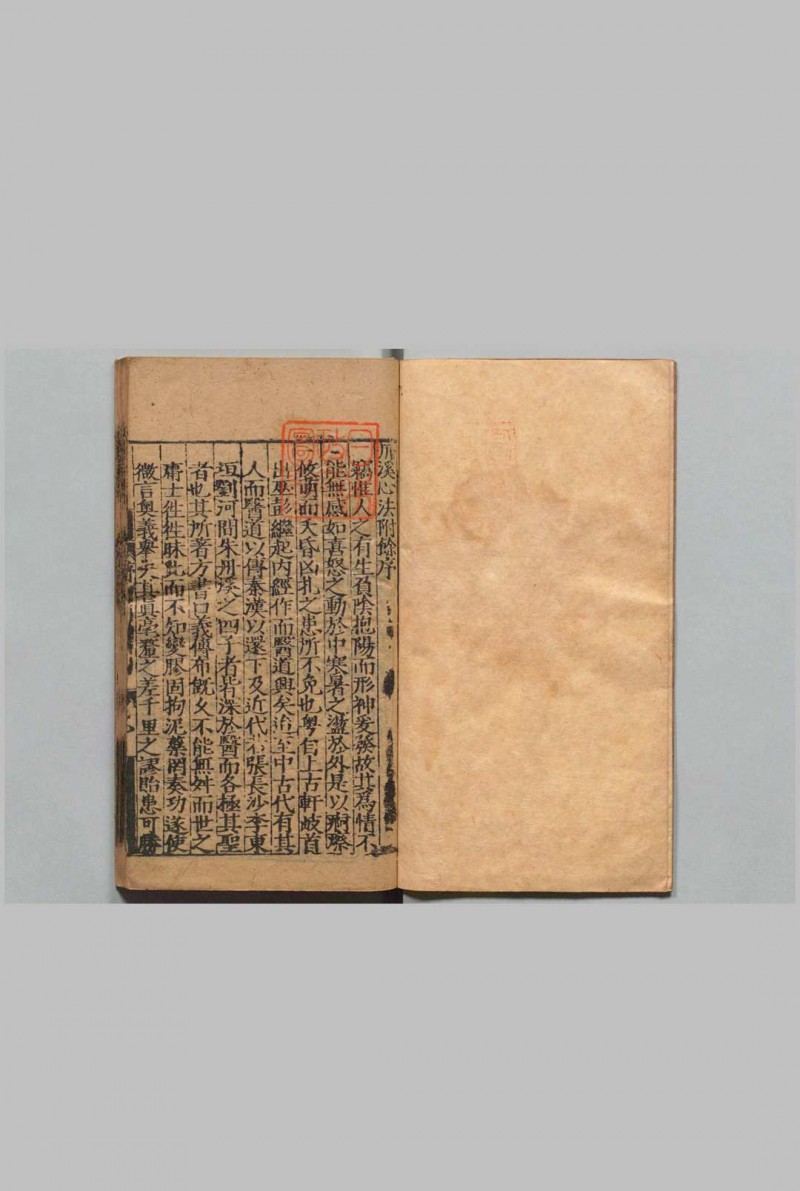 丹溪心法附餘序
竊惟人之有生負陰抱陽而形神爰發故其為情不
能無感如喜怒之動於中寒暑之盪於外是以痾瘵
攸萌而夭昏凶札之患所不免也粵自上古軒岐首
出巫彭繼起內經作而醫道興矣迨至中古代有其
人而醫道以傳秦漢以還下及近代若張長沙李東
垣劉河間朱丹溪之四子者皆深於醫而各極其聖
者也其所著方書口義傳布既久不能無舛而世之
庸士徃徃昧此而不知變膠固拘泥藥罔奏功遂使
微言奧義舉失其真毫釐之差千里之謬貽患可勝